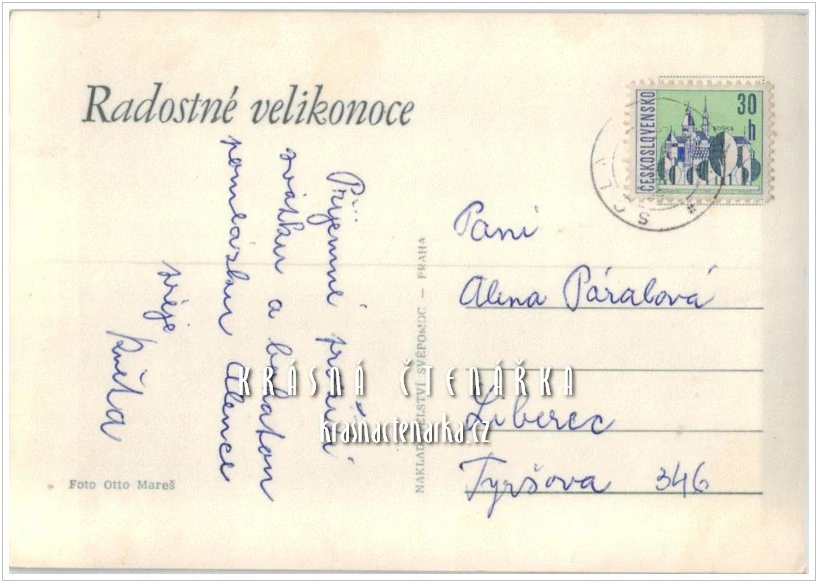 Radostné velikonoce
Příjemné prožití
svátků a bohatou
pomlázku Alence
přeje
Květa
Foto Otto Mareš
NAKLADATELSTVÍ SVÉPOMOC — PRAHA
ČESKOSLOVENSKO
30
h
KOŠICE
Paní
Alena Páralová
Liberec
Tyršova 346
KRÁSNÁ ČTENÁŘKA
krasnactenarka.cz